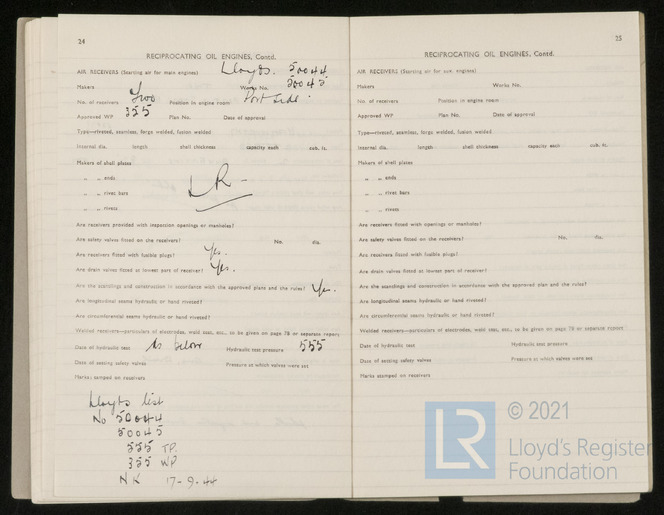 24
RECIPROCATING OIL ENGINES, Contd.
AIR RECEIVERS (Starting air for main engines) Lloyds. 50044
Makers Works No. 50045
No. of receivers Two Position in engine room Port side.
Approved WP 355 Plan No. Date of approval
Type—riveted, seamless, forge welded, fusion welded
Internal dia. length shell thickness capacity each cub. ft.
Makers of shell plates
„ „ ends
LR
„ „ rivet bars
„ „ rivets
Are receivers provided with inspection openings or manholes?
Are safety valves fitted on the receivers? No. dia.
Are receivers fitted with fusible plugs? Yes.
Are drain valves fitted at lowest part of receiver? Yes.
Are the standings and construction in accordance with the approved plans and the rules? Yes.
Are longitudinal seams hydraulic or hand riveted?
Are circumferential seams hydraulic or hand riveted?
Welded receivers—particulars of electrodes, weld test, etc., to be given on page 78 or separate report
Date of hydraulic test As below Hydraulic test pressure 555
Date of setting safety valves Pressure at which valves were set
Marks stamped on receivers
Lloyds list
No 50044
50045
555 TP.
355 WP
NK 17-9-44
25
RECIPROCATING OIL ENGINES, Contd.
AIR RECEIVERS (Starting air for engines)
Makers Works No.
No. of receivers Position in engine room
Approved WP Plan No. Date of approval
Type—riveted, seamless, forge welded, fusion welded
Internal dia. length shell thickness capacity each cub. ft.
Makers of shell plates
„ „ ends
„ „ rivet bars
„ „ rivets
Are receivers fitted with openings or manholes?
Are safety valves fitted on the receivers? No. dia.
Are receivers fitted with fusible plugs?
Are drain valves fitted at lowest part of receiver?
Are the standings and construction in accordance with the approved plan and the rules?
Are longitudinal seams hydraulic or hand riveted?
Are circumferential seams hydraulic or hand riveted?
Welded receivers—particulars of electrodes, weld test, etc., to be given on page 78 or separate report
Date of hydraulic test Hydraulic test pressure
Date of setting safety valves Pressure at which valves were set
Marks stamped on receivers
LR
© 2021
Lloyd's Register
Foundation